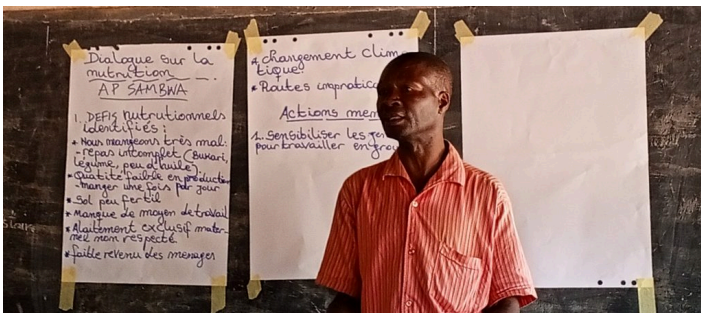 Dialogue sur la
nutrition
AP SAMBWA
1. DEFIS Nutrutionnels
identifiés :
* Nous mangeons très mal:
- repas incomplet (Bukari,
légume, peu d'huile)
* Quatité faible en production
- manger une fois par jour
* Sol peu fertil
* Manque de moyen de travail
* Alaitement exclusif mater-
nel non respecté
* faible revenu des menages
* changement clima
tique.
* Routes impratica
Actions men
1. Sensibiliser les
pour travailler en